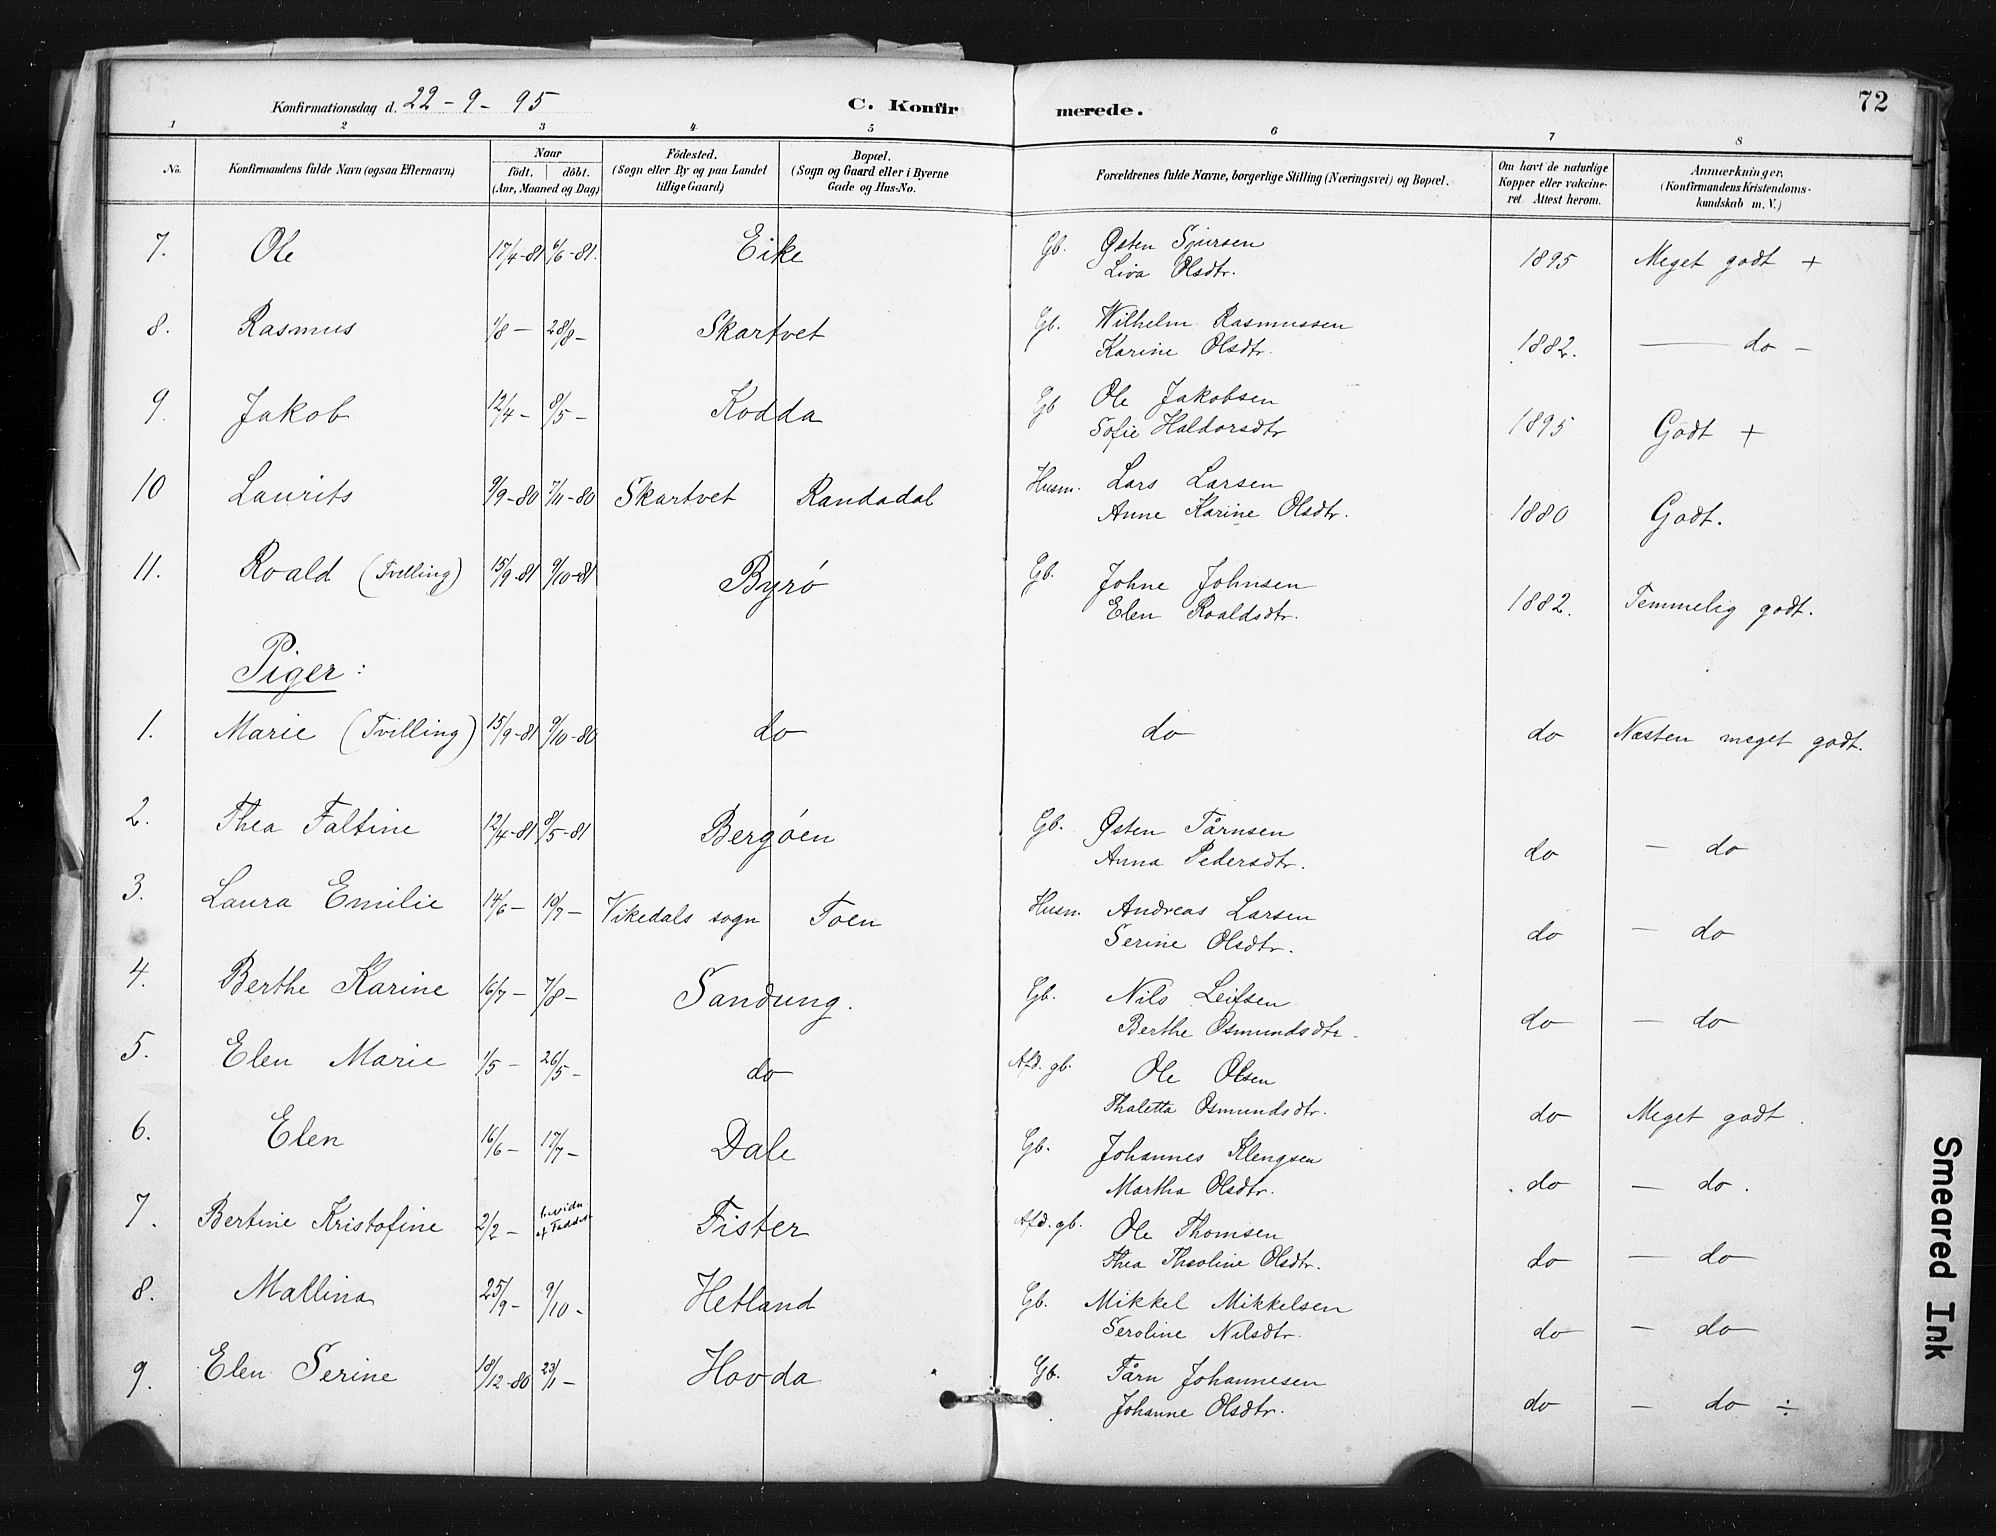 Konfirmationsdag d. 22 - 9 - 95 C. Konfirmerede. 72
1 2 3 4 5 6 7 8
No. Konfirmandens fulde Navn (ogsaa Efternavn) Naar født. døbt. (Aar, Maaned og Dag) Fødested. (Sogn eller By og paa Landet tillige Gaard) Bopæl. (Sogn og Gaard eller i Byerne Gade og Hus-No. Forældrenes fulde Navne, borgerlige Stilling (Næringsvei) og Bopæl. Om havt de naturlige Kopper eller vakcineret. Attest herom. Anmærkninger. (Konfirmandens Kristendomskundskab m. V.)
7. Ole 17/4-81 6/6-81. Eike Gb. Østen Sjursen
Liva Olsdtr. 1895 Meget godt +
8. Rasmus 1/8 - 28/8 - Skartvet Gb. Wilhelm Rasmussen
Karine Olsdtr. 1882. — do -
9. Jakob 12/4 - 8/5 - Kodda Gb Ole Jakobsen
Sofie Haldorsdtr 1895 Godt +
10 Laurits 9/9-80 7/11-80 Skartvet Randadal Husm. Lars Larsen
Anne Karine Olsdtr. 1880 Godt.
11. Roald (Tvilling) 15/9-81 9/10-81 Byrø Gb. Johne Johnsen
Elen Roaldsdtr. 1882. Temmelig godt.
Piger:
1. Marie (Tvilling) 15/9-81 9/10-80 do do do Næsten meget godt.
2. Thea Faltine 12/4-81 8/5-81 Bergøen Gb. Østen Tårnsen
Anna Pedersdtr. do - do
3. Laura Emilie 14/6 - 10/7 - Vikedals sogn Toen Husm. Andreas Larsen
Serine Olsdtr. do - do
4. Berthe Karine 16/7 - 7/8 - Sandung. Gb. Nils Leifsen
Berthe Osmundsdtr. do - do
5. Elen Marie 1/5 - 26/5 - do Afd. gb. Ole Olsen
Thaletta Osmundsdtr. do Meget godt.
6. Elen 16/6 - 17/7 - Dale Gb. Johannes Klengsen
Martha Olsdtr. do - do.
7. Bertine Kristofine 2/2 - af Fister Afd. gb. Ole Thomsen
Thea Theoline Olsdtr. do - do
8. Mallina 25/9 - 9/10 - Hetland Gb. Mikkel Mikkelsen
Seroline Nilsdtr. do - do
9. Elen Serine 18/12-80 23/1 - Hovda Gb. Tårn Johannesen
Johanne Olsdtr. do - do ÷
Smeared Ink